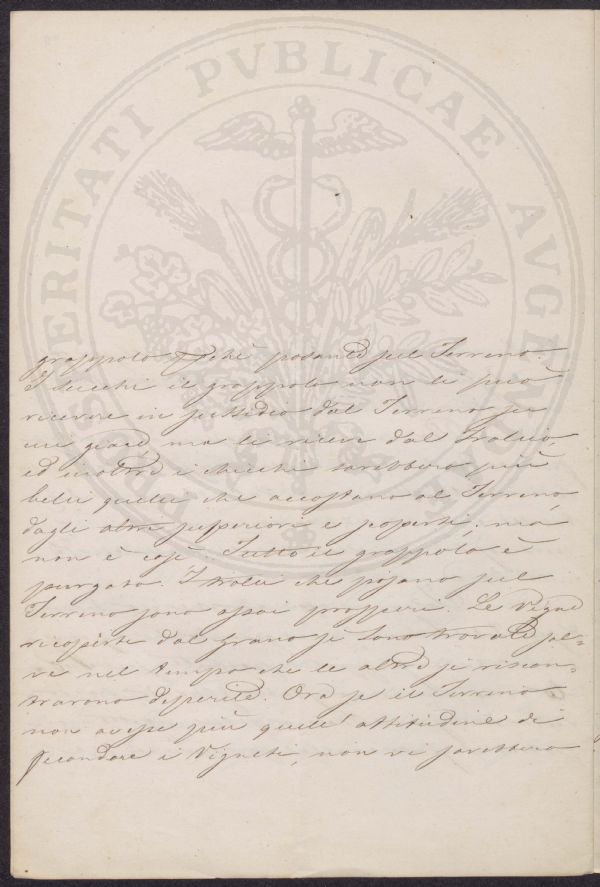 PROSPERITATI PVBLICAE AVGENDAE
grappolo perchè posante sul Terreno.
I succhi il grappolo non li può
ricevere in sussidio dal Terreno su
cui giace ma li riceve dal tralcio,
ed inoltre i chicchi sarebbero più
belli quelli che accostano al Terreno
dagli altri superiori e scoperti; ma
non è così. Tutto il grappolo è
purgato. I tralci che posano sul
Terreno sono assai prosperi. Le Vigne
ricoperte dal grano si sono trovate sal-
ve nel tempo che le altre si riscon-
trarono deperite. Ora se il Terreno
non avesse più quell' attitudine di
fecondare i Vigneti, non vi sarebbero